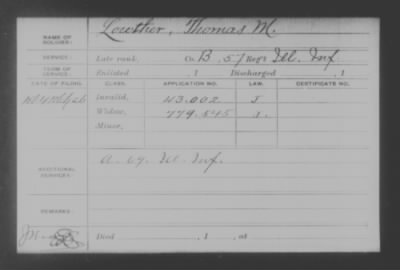 NAME OF SOLDIER: Lowther, Thomas M.
SERVICE: Late rank, Co. B, 57 Reg't Ill. Inf.
TERM OF SERVICE: Enlisted , 1 Discharged , 1
DATE OF FILING. CLASS. APPLICATION NO. LAW. CERTIFICATE NO.
Invalid, 43.002 J
Widow, 779.545
Minor,
ADDITIONAL SERVICES: A. 69. Ill. Inf.
REMARKS:
Died , 1 , at